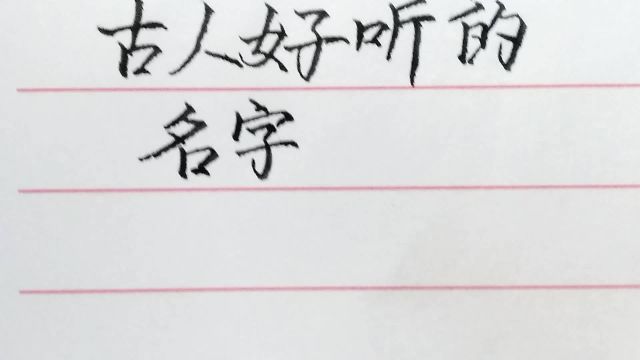 古人好听的
名字